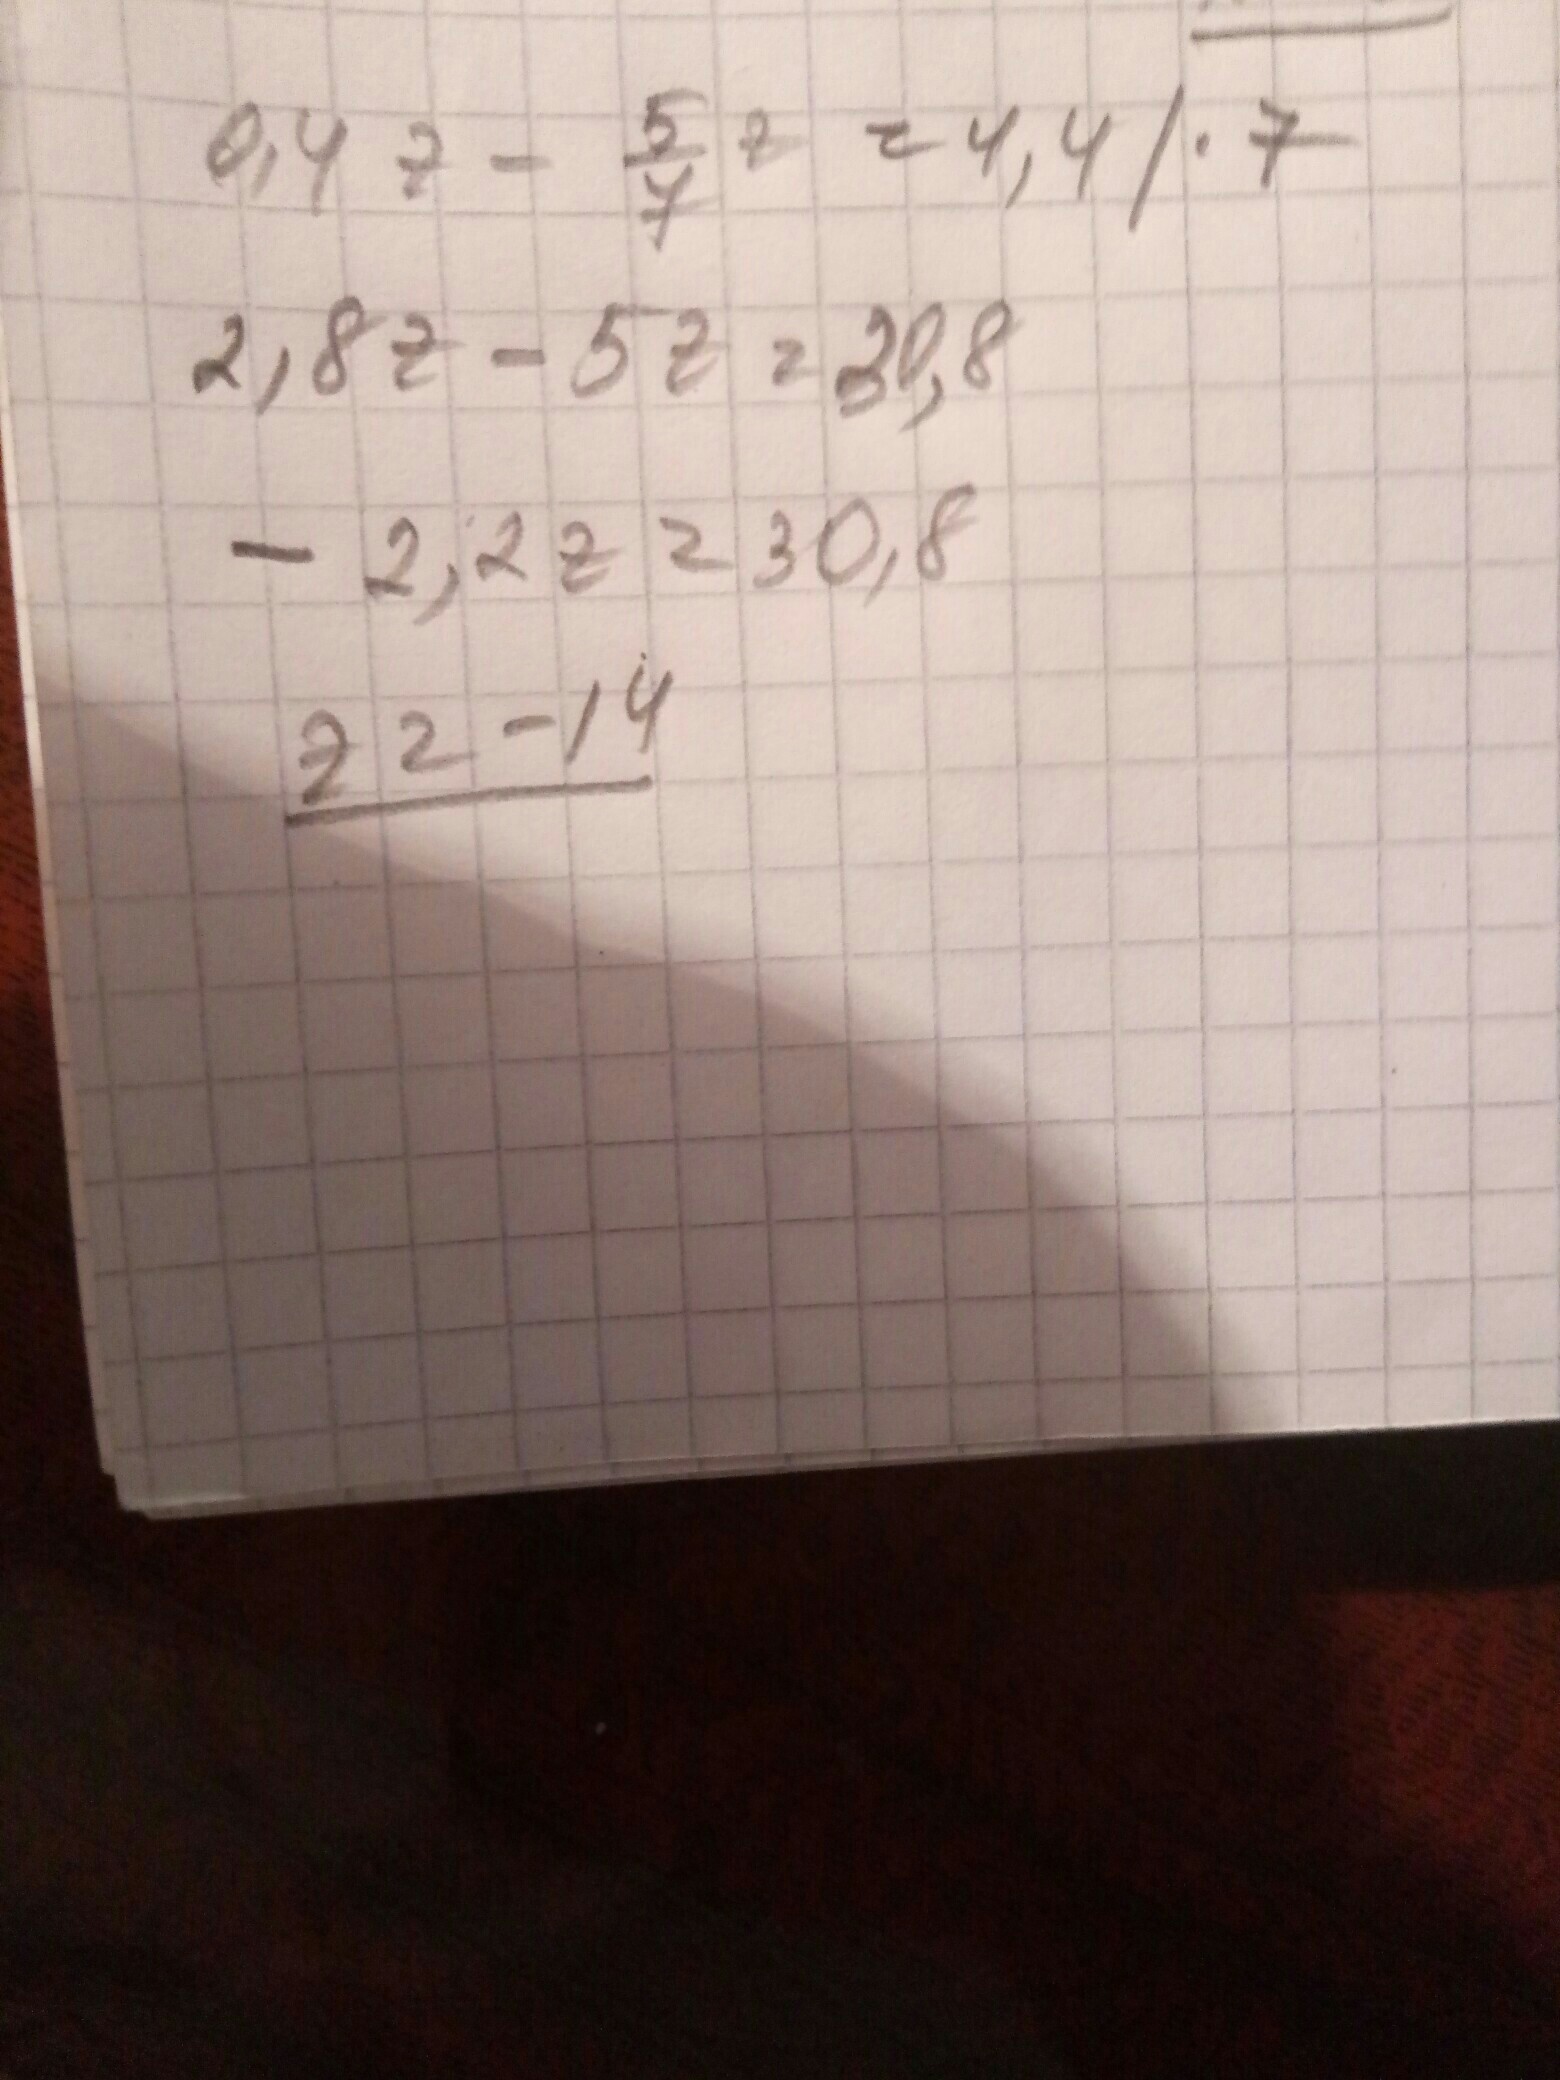 0,4z - 5/7 z = 4,4 / · 7
2,8z - 5z = 30,8
- 2,2z = 30,8
z = -14